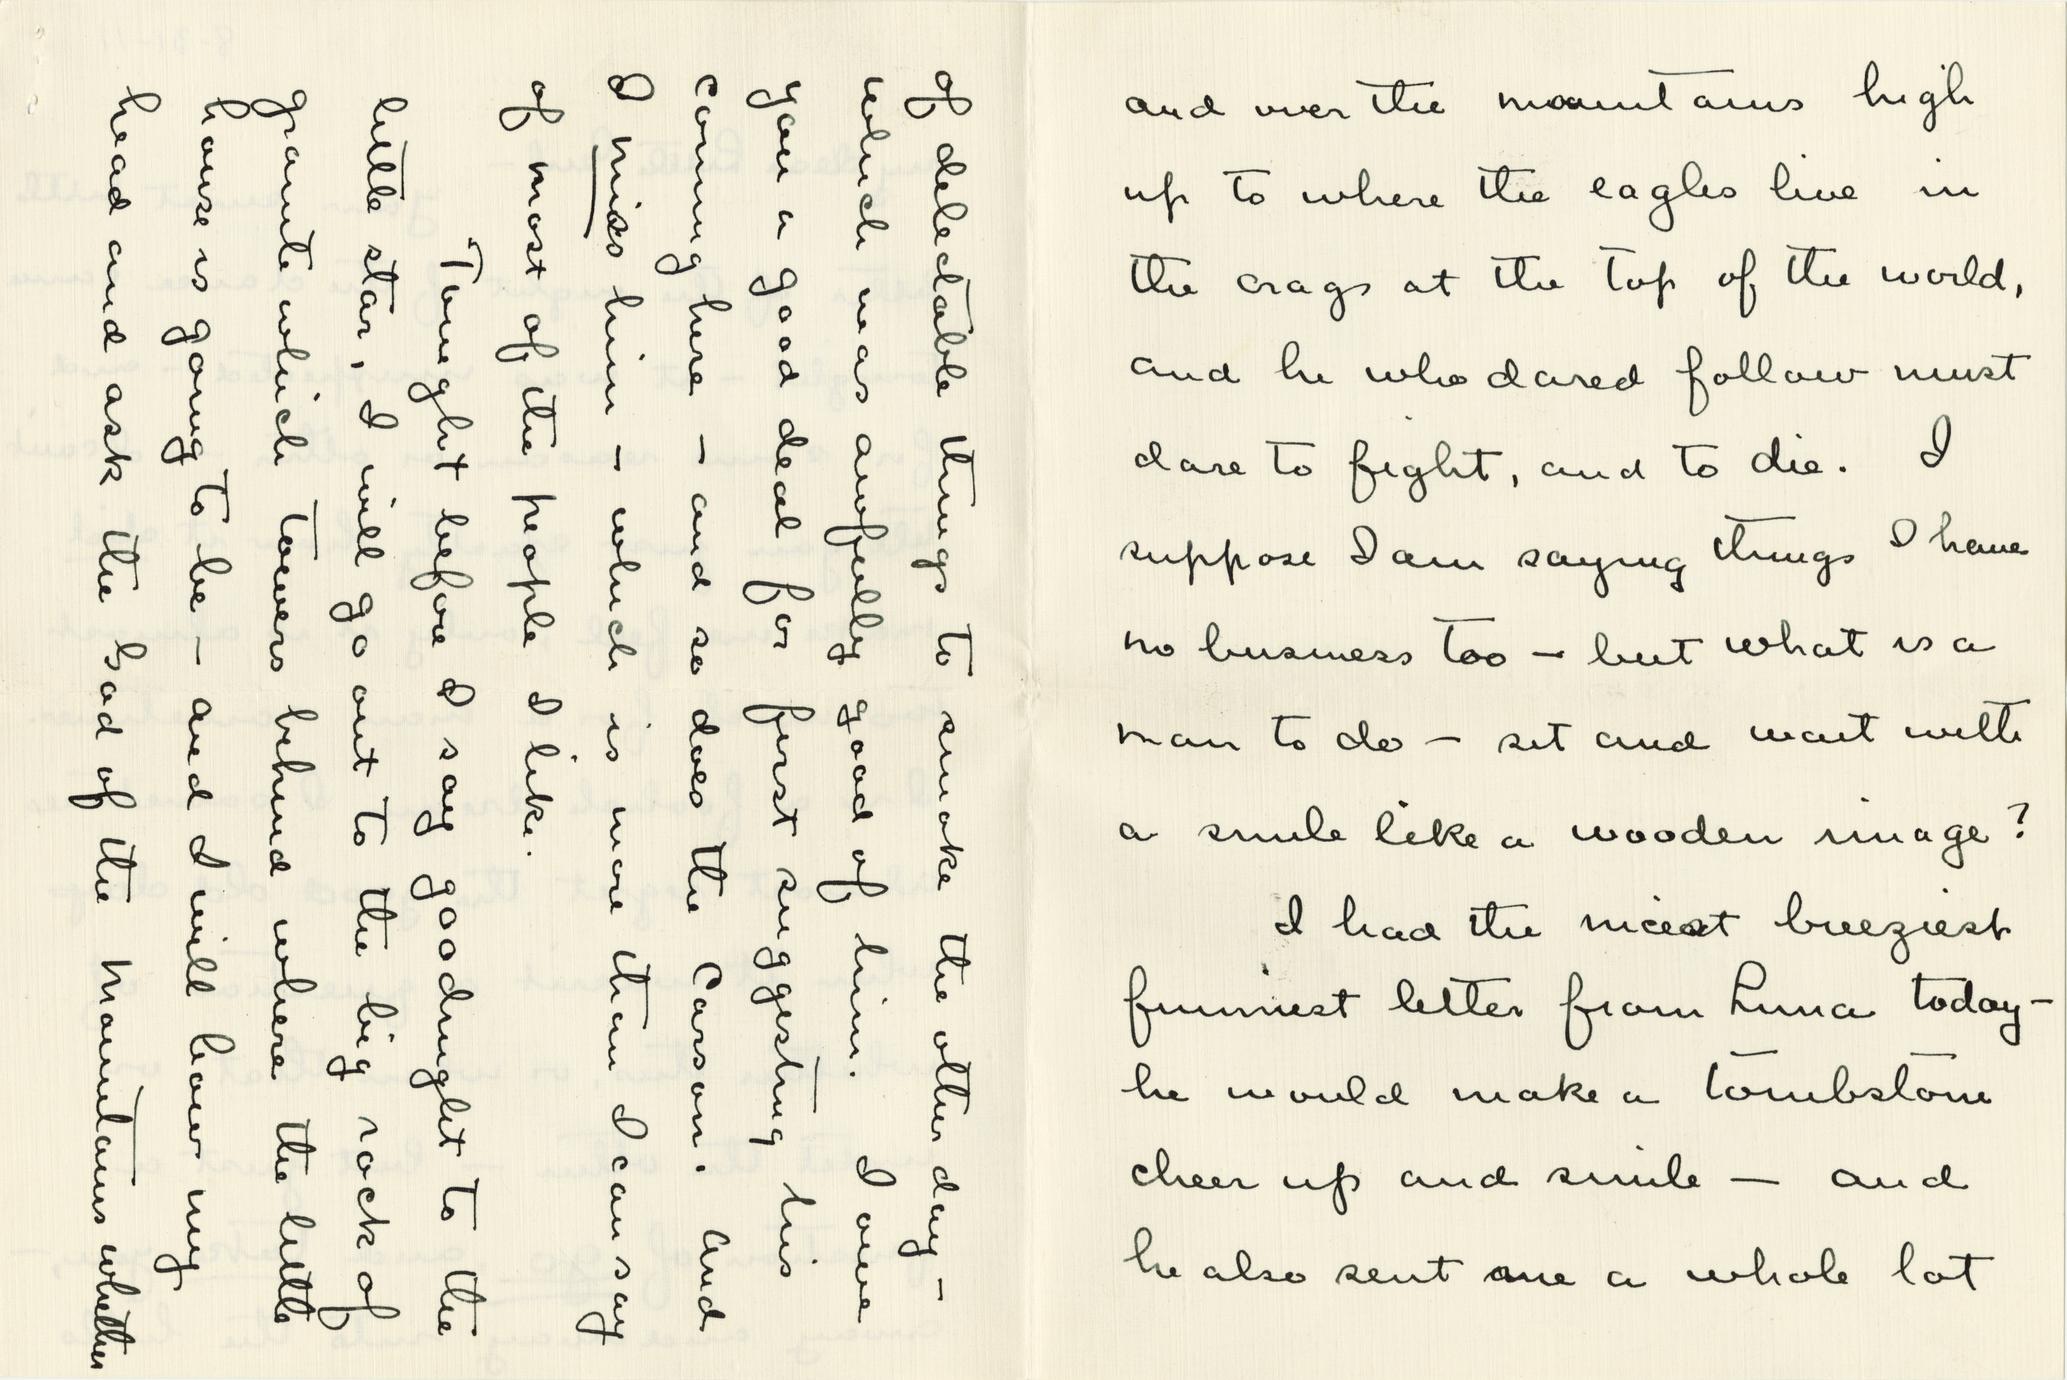 and over the mountains high
up to where the eagles live in
the crags at the top of the world,
and he who dared follow must
dare to fight, and to die. I
suppose I am saying things I have
no business too — but what is a
man to do — sit and wait with
a smile like a wooden image?
I had the nicest breeziest
funniest letter from Luna today—
he would make a tombstone
cheer up and smile — and
he also sent me a whole lot
of delectable things to smoke the other day —
which was awfully good of him. I owe
you a good deal for first suggesting his
coming here — and so does the Carson. And
I miss him — which is more than I can say
of most of the people I like.
Tonight before I say goodnight to the
little star, I will go out to the big rock of
granite which towers behind where the little
house is going to be — and I will bow my
head and ask the God of the mountains whether